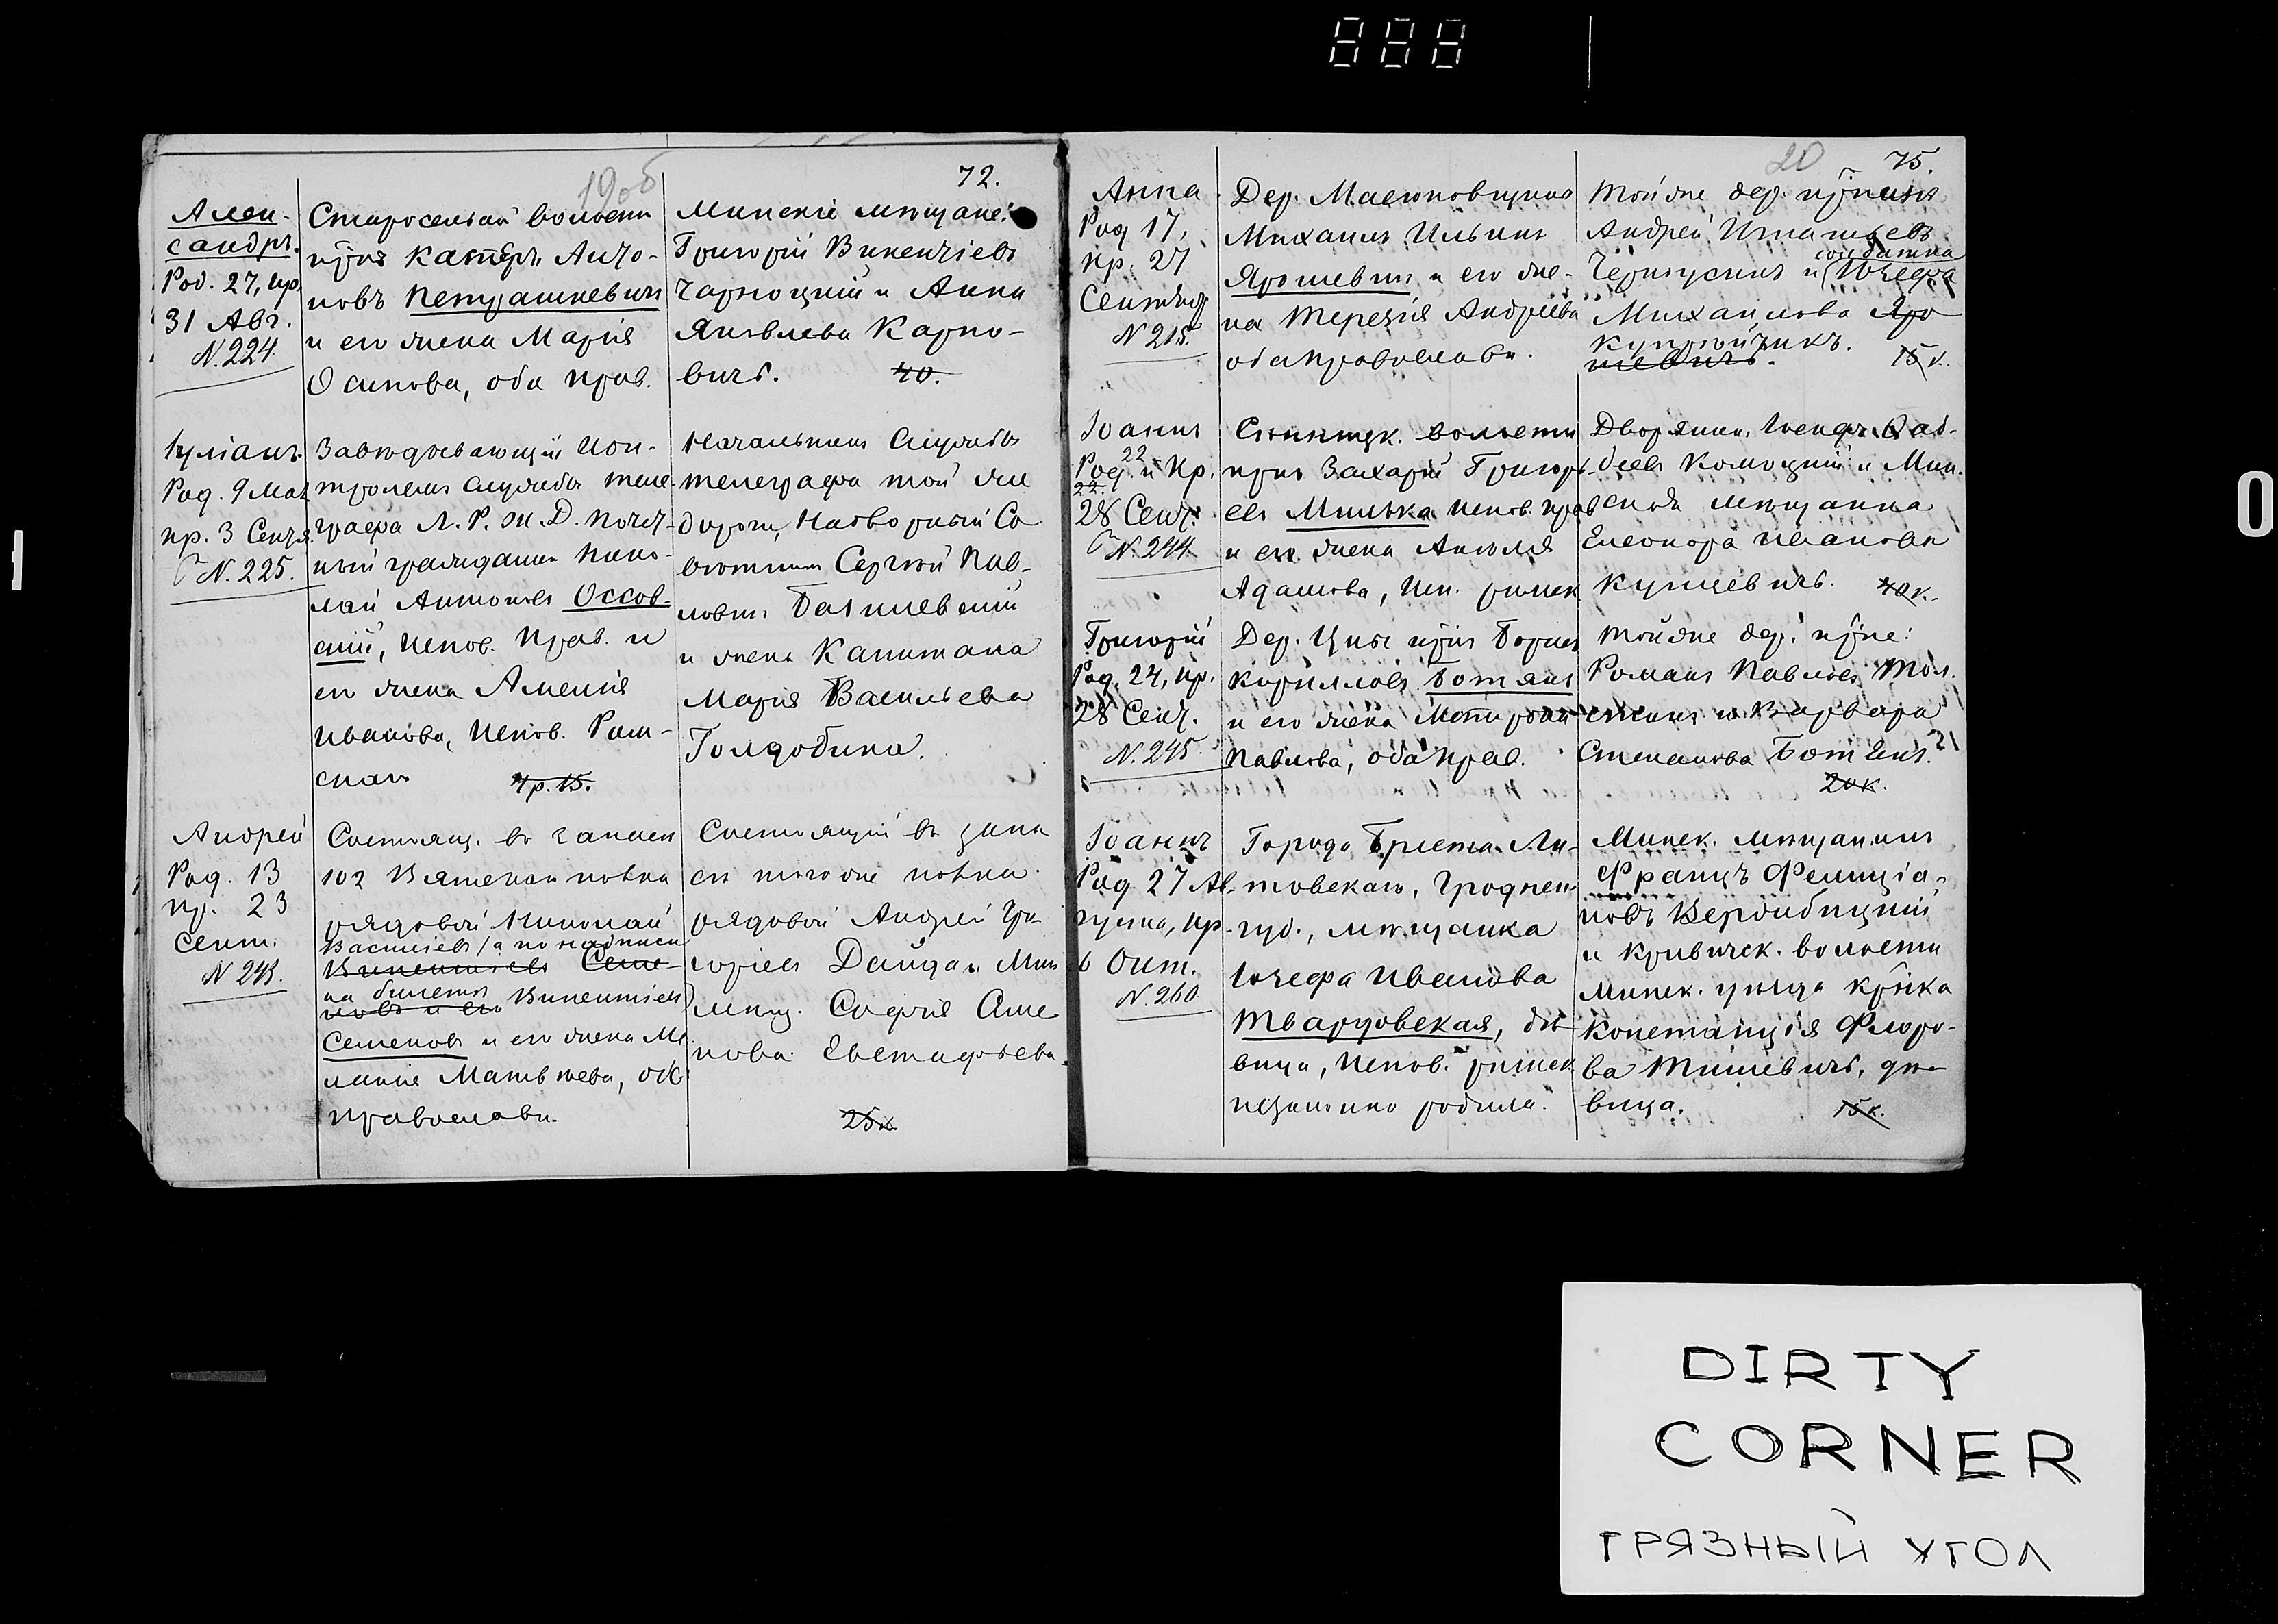 19об
72.
Алек-
сандръ.
Род. 27, кр.
31 Авг.
N. 224.
Старосельской волости
кр̃нъ Касперъ Анто-
новъ Петрашкевичъ
и его жена Марія
Осипова, оба прав.
Минскіе мѣщане:
Григорій Викентіевъ
Чарноцкій и Анна
Яковлева Карпо-
вичъ. 40.
Іуліанъ.
Род. 9 Мая
кр. 3 Сентя.
N. 225.
Завѣдывающій Кон-
тролемъ службы теле-
графа Л. Р. Ж. Д. почет-
ный гражданинъ Нико-
лай Антоновъ Оссов-
скій, испов. Прав. и
его жена Амелія
Иванова, испов. Рим-
скаго 4р. 15.
Начальникъ Службы
телеграфа той же
дороги, Надворный Со
вѣтникъ Сергѣй Пав-
ловъ
и жена Капитана
Марія Васильева
Голдобина.
Андрей
Род. 13
кр. 23
Сент.
N 243.
Состоящ. въ запасѣ
102 Вятскаго полка
рядовой Николай
Васильевъ /а по надписи
Викентіевъ Семе-
на билетѣ
новъ и его Викентіевъ
Семеновъ и его жена Ме
ланія Матвѣева, оба
православн.
Состоящій въ запа
сѣ того же полка
рядовой Андрей Гри
горіевъ Дайда и Мин
мѣщ. Софія Семе
нова Евстафьева.
25к
20
75.
Анна
Род 17,
кр. 27
Сентяб
Дер. Масюковщина
Михаилъ Ильинъ
Ярошевичъ и его же-
на Терезія Андреева
оба православн.
той же дер. кр̃нинъ
Андрей Игнатьевъ
солдатка
и Юзефа
Михайлова Яро
шевичъ. 15к.
Іоаннъ
22
Род. и Кр.
22.
28 Сент.
N. 244.
волости
кр̃нъ Захарій Григорь-
евъ Милька испов. прав
и его жена Анеля
Адамова, Исп. римск.
Дворянинъ Іосифъ
Комоцкій и Мин-
ская мѣщанка
Елеонора Иванова
Куцевичъ. 40к.
Григорій
Род. 24, кр.
28 Сент.
N. 245.
Дер. Цны кр̃нъ Борисъ
Кирилловъ Ботянъ
и его жена
Павлова, оба прав.
той же дер. кр̃не:
Романъ Павловъ Тол-
стикъ и Варвара
Степанова Ботянъ.
20к.
Іоаннъ
Род 27 Ав-
густа, кр.
6 Окт.
N. 260.
Города Бреста-Ли-
товскаго, Гроднен.
губ., мѣщанка
Юзефа Иванова
Твардовская, дѣ-
вица, испов. римск
незаконно родила.
Минск. мѣщанинъ
Францъ Фелиціа-
новъ Вержбицкій
и Кривичск. волости
Минск. уѣзда кр̃нка
Констанція Флоро-
ва Тишевичъ, дѣ-
вица. 15к.
DIRTY
CORNER
ГРЯЗНЫЙ УГОЛ